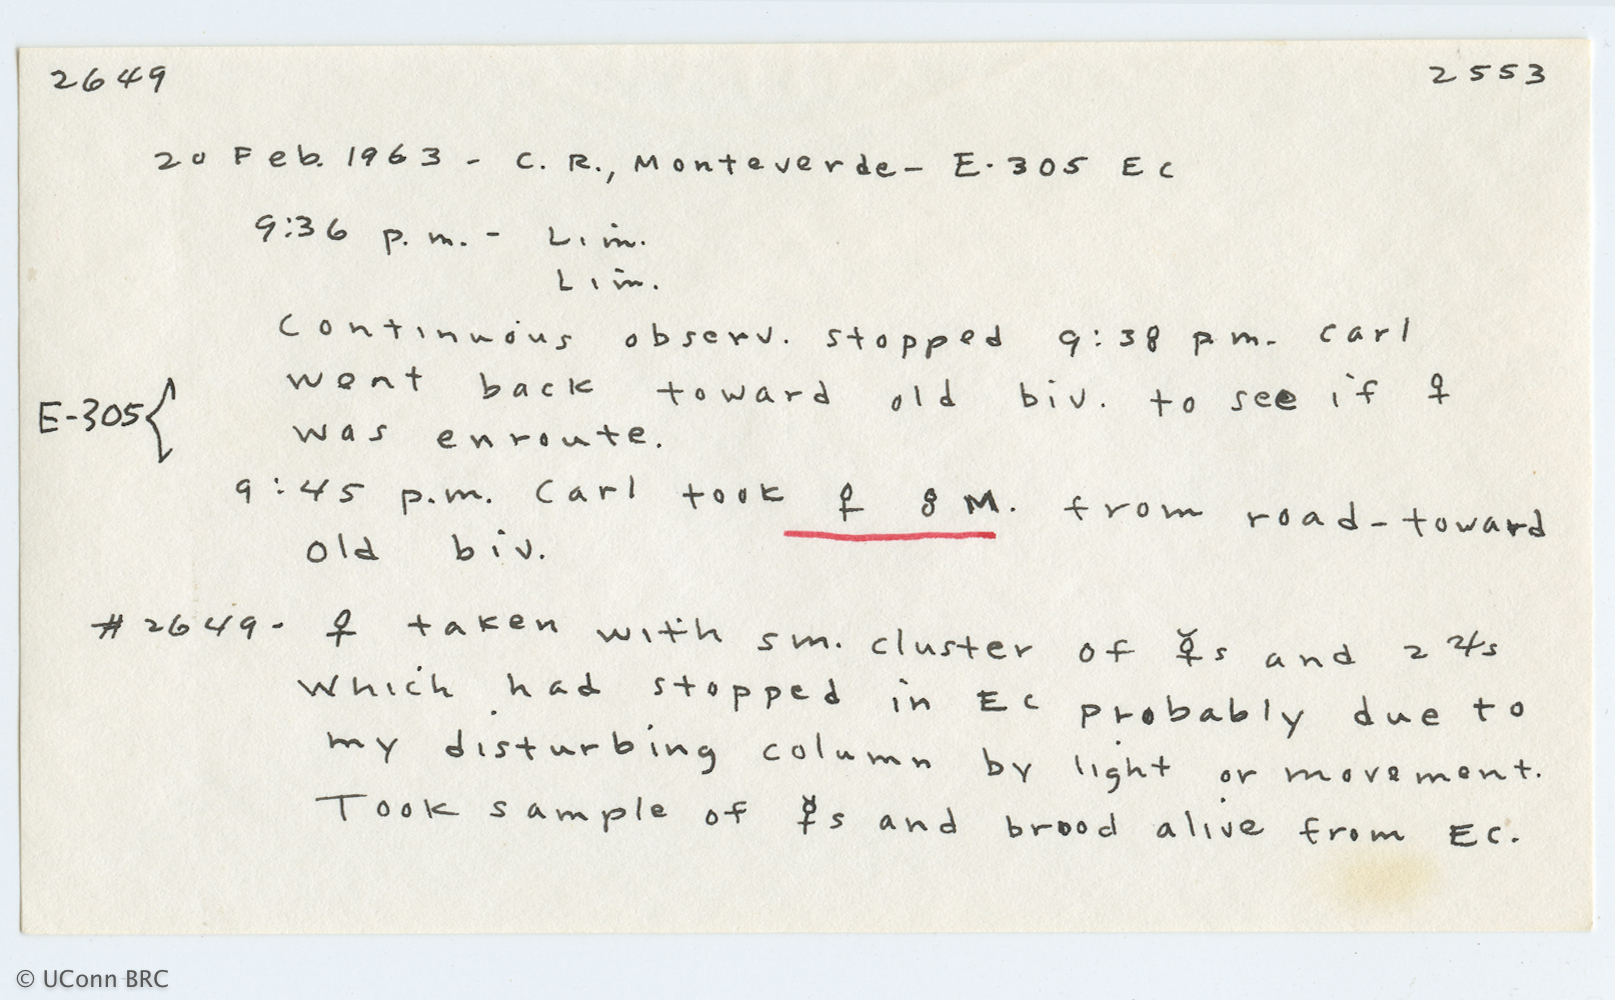 2649 2553
20 Feb. 1963 - C. R., Monteverde - E-305 Ec
9:36 p.m. - Lim.
Lim.
Continuous observ. stopped 9:38 p.m. Carl
went back toward old biv. to see if ♀
E-305 { was enroute.
9:45 p.m. Carl took ♀ 8 M. from road - toward
old biv.
#2649 - ♀ taken with sm. cluster of ☿s and 2 ♃s
which had stopped in Ec probably due to
my disturbing column by light or movement.
Took sample of ☿s and brood alive from Ec.
© UConn BRC